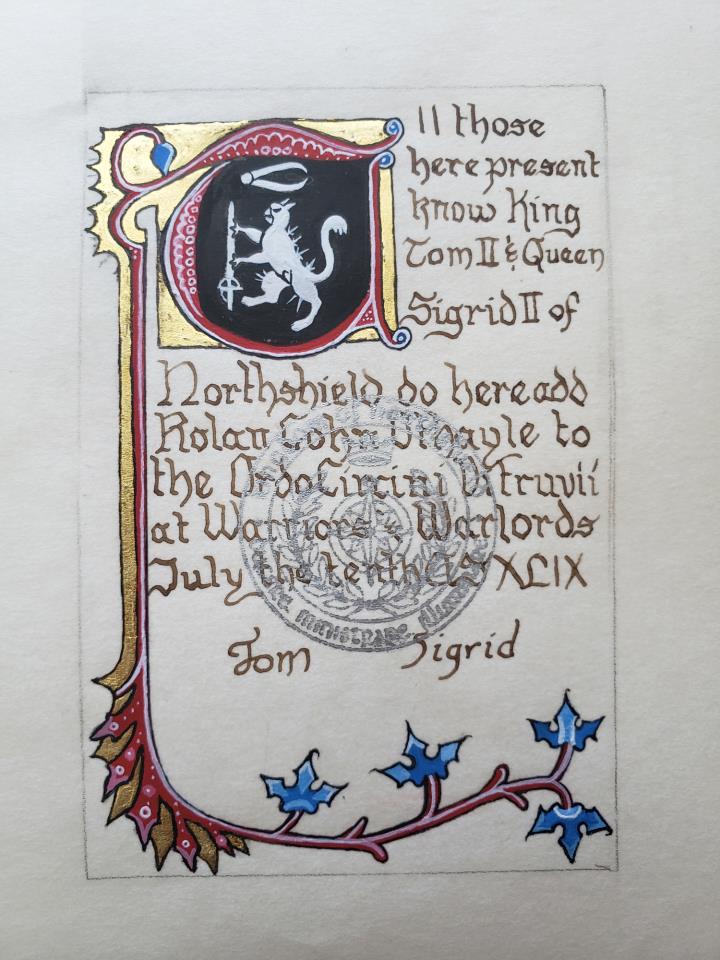 All those
here present
know King
Tom II & Queen
Sigrid II of
Northshield do here add
Rolan to
the Ordo Circini Vitruvii
at Warriors & Warlords
July the tenth AS XLIX
Tom Sigrid